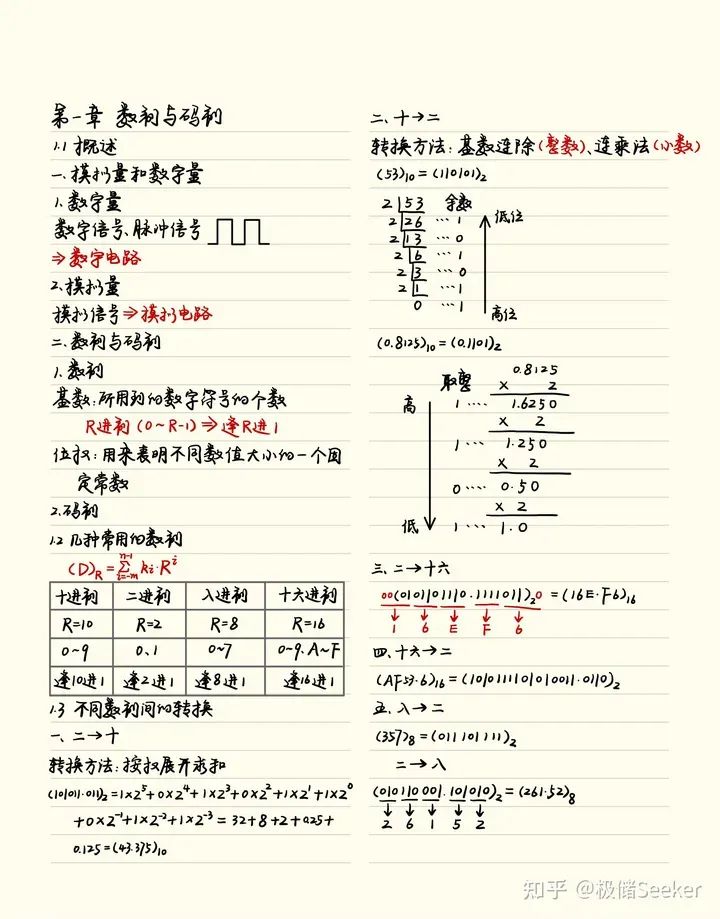 第一章 数制与码制
1.1 概述
一、模拟量和数字量
1.数字量
数字信号、脉冲信号
⇒数字电路
2.模拟量
模拟信号⇒模拟电路
二、数制与码制
1.数制
基数:所用到的数字符号的个数
R进制(0~R-1)⇒逢R进1
位权:用来表明不同数值大小的一个固
定常数
2.码制
1.2 几种常用的数制
(D)_R=∑_{i=-m}^{n-1} k_i·R^i
十进制 二进制 八进制 十六进制
R=10 R=2 R=8 R=16
0~9 0.1 0~7 0~9.A~F
逢10进1 逢2进1 逢8进1 逢16进1
1.3 不同数制间的转换
一、二→十
转换方法:按权展开求和
(101011.011)₂=1×2⁵+0×2⁴+1×2³+0×2²+1×2¹+1×2⁰
+0×2⁻¹+1×2⁻²+1×2⁻³=32+8+2+0.25+
0.125=(43.375)₁₀
二、十→二
转换方法:基数连除(整数)、连乘法(小数)
(53)₁₀=(110101)₂
2 53 余数
2 26 … 1 低位
2 13 … 0
2 6 … 1
2 3 … 0
2 1 … 1
0 … 1 高位
(0.8125)₁₀=(0.1101)₂
0.8125
取整 × 2
高 1 …. 1.6250
× 2
1 … 1.250
× 2
0 …. 0.50
× 2
低 1 … 1.0
三、二→十六
00(0101101110.1111011)₂0=(16E.F6)₁₆
↓ ↓ ↓ ↓ ↓
1 6 E F 6
四、十六→二
(AF53.6)₁₆=(1010111101010011.0110)₂
五、八→二
(357)₈=(011101111)₂
二→八
(010110001.101010)₂=(261.52)₈
↓ ↓ ↓ ↓ ↓
2 6 1 5 2
知乎 @极储Seeker